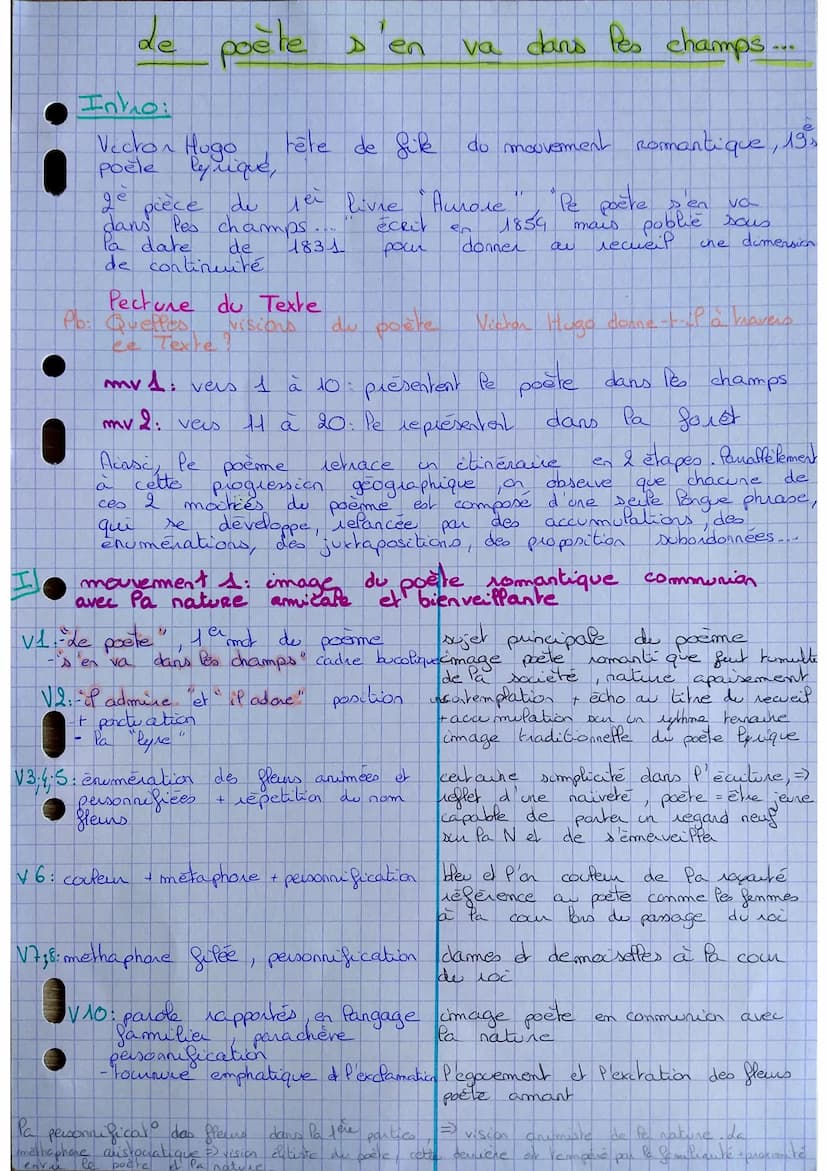 Le poète s'en va dans les champs...
Intro:
Victor Hugo, tête de file du mouvement romantique, 19è,
poète lyrique,
2è pièce du 1er livre "Aurore", "le poète s'en va
dans les champs..." écrit en 1854 mais publié sous
la date de 1831 pour donner au recueil une dimension
de continuité
lecture du Texte
Pb: Quelles visions du poète Victor Hugo donne-t-il à travers
ce Texte?
mv 1: vers 1 à 10: présentent le poète dans les champs
mv 2: vers 11 à 20: le représentent dans la forêt
Ainsi, le poème retrace un itinéraire en 2 étapes. Parallèlement
à cette progression géographique, on observe que chacune de
ces 2 moitiés du poème est composé d'une seule longue phrase,
qui se développe, relancée par des accumulations, des
énumérations, des juxtapositions, des proposition subordonnées...
I) mouvement 1: image du poète romantique communion
avec la nature amicale et bienveillante
V1:-"Le poète", 1er mot du poème sujet principale du poème
-"s'en va dans les champs" cadre bucolique image poète romantique fuit tumulte
de la société, nature apaisement
V2:-"il admire" et "il adore" position contemplation + écho au titre du recueil
+ ponctuation +accumulation sur un rythme ternaire
- la "lyre" image traditionnelle du poète lyrique
V3,4,5: énumération des fleurs animées et certaine simplicité dans l'écriture, =>
personnifiées + répétition du nom reflet d'une naïveté, poète = être jeune
fleurs capable de porter un regard neuf
sur la N et de s'émerveille
V6: couleur + métaphore + personnification bleu et l'or couleur de la royauté
référence au poète comme les femmes
à la cour lors du passage du roi
V7,8: méthaphore filée, personnification dames et demoiselles à la cour
du roi
V10: parole rapportés, en langage image poète en communion avec
familier, parachève la nature
personnification
- tournure emphatique + l'exclamation l'egouement et l'exitation des fleurs
poète amant
la personnificat° des fleurs dans la 1ère partie, => vision animiste de la nature. La
méthaphore aristocratique => vision élitiste du poète, cette dernière est tempéré par la familiarité + proximité
entre le poète et la nature